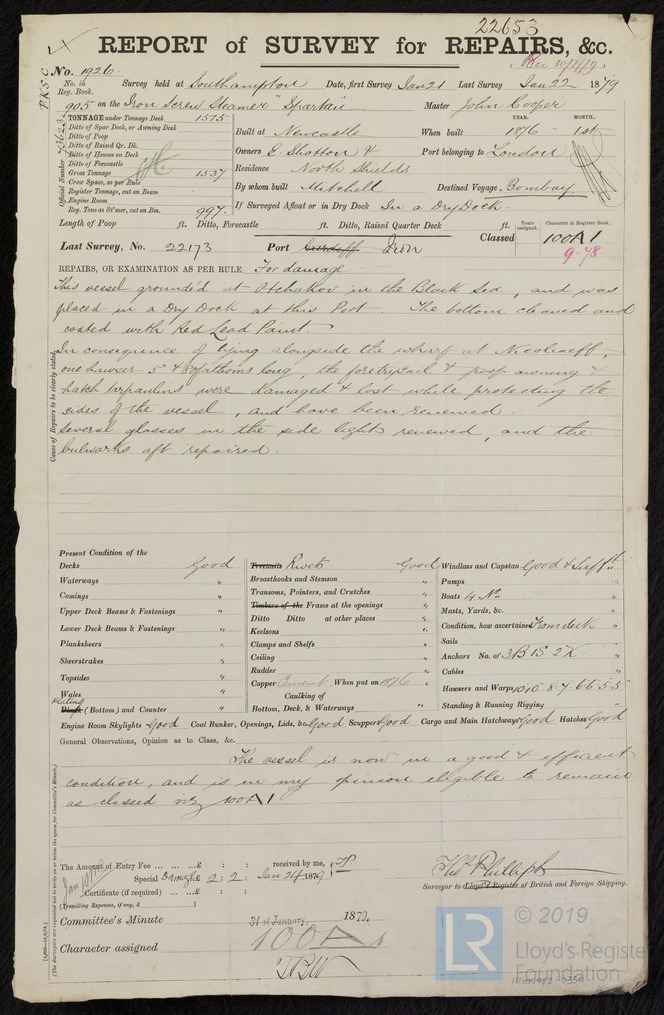 22653
REPORT of SURVEY for REPAIRS, &c.
Rec 30/1/79
No. 1926
No. in Reg. Book. Survey held at Southampton Date, first Survey Jan 21 Last Survey Jan 22 1879
905 on the Iron Screw Steamer "Spartan" Master John Cooper
TONNAGE under Tonnage Deck 1515
Ditto of Spar Deck, or Awning Deck
Ditto of Poop
Ditto of Raised Qr. Dk.
Ditto of Houses on Deck
Ditto of Forecastle
Gross Tonnage 1537
Crew Space, as per Rule
Register Tonnage, cut on Beam
Engine Room
Reg. Tons as St'mer, cut on Bm. 997
Official Number
YEAR. MONTH.
Built at Newcastle When built 1876 1st
Owners E Shotton & Port belonging to London
Residence North Shields
By whom built Mitchell Destined Voyage Bombay
If Surveyed Afloat or in Dry Dock In a Dry Dock.
Length of Poop ft. Ditto, Forecastle ft. Ditto, Raised Quarter Deck ft.
Years assigned. Character in Register Book.
Last Survey, No. 22173 Port Cardiff Iron Classed 100A1
9.78
REPAIRS, OR EXAMINATION AS PER RULE For damage
This vessel grounded at Otchakov in the Black Sea, and was
placed in a Dry Dock at this Port. The bottom cleaned and
coated with Red Lead Paint.
In consequence of lying alongside the wharf at Nicolaeff,
one hawser 5" & 80 fathoms long, the foretrysail & poop awning &
hatch tarpaulins were damaged & lost while protecting the
sides of the vessel, and have been renewed.
Several glasses in the side light renewed, and the
bulwarks aft repaired.
Cause of Repairs to be clearly stated.
Present Condition of the
Decks Good
Waterways "
Comings "
Upper Deck Beams & Fastenings "
Lower Deck Beams & Fastenings "
Planksheers "
Sheerstrakes "
Topsides "
Wales "
Plating
Plank (Bottom) and Counter "
Treenails Rivets Good
Breasthooks and Stemson "
Transoms, Pointers, and Crutches "
Timbers of the Frame at the openings "
Ditto Ditto at other places "
Keelsons "
Clamps and Shelfs "
Ceiling "
Rudder "
Copper Cement When put on 1876 "
Caulking of
Bottom, Deck, & Waterways
Windlass and Capstan Good & Suff't
Pumps "
Boats 4 No. "
Masts, Yards, &c. "
Condition, how ascertained From deck "
Sails "
Anchors No. of 3B 1S 2K "
Cables "
Hawsers and Warps 10 10 8 7 6 6 5 5 "
Standing & Running Rigging "
Engine Room Skylights Good Coal Bunker, Openings, Lids, &c. Good Scuppers Good Cargo and Main Hatchways Good Hatches Good
General Observations, Opinion as to Class, &c.
The vessel is now in a good & efficient
condition, and is in my opinion eligible to remain
as classed viz 100A1
The Amount of Entry Fee ... ... ...£ : : received by me,
Special Damage £ 2 : 2 : Jan 24 1879
Certificate (if required) ... ... ...£ : :
(Travelling Expenses, if any, £ )
Thos Phillips
Surveyor to Lloyd's Register of British and Foreign Shipping.
Committee's Minute 31st January, 1879.
Character assigned 100A1
(The Surveyors are requested not to write on or below the space for Committee's Minute.)
LR
© 2019
Lloyd's Register
Foundation